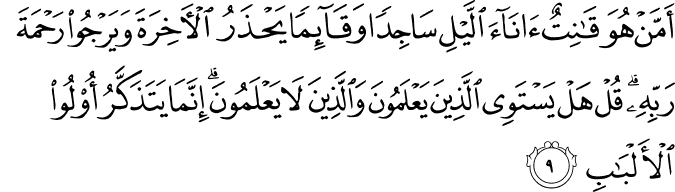 أَمَّنۡ هُوَ قَٰنِتٌ ءَانَآءَ ٱلَّيۡلِ سَاجِدٗا وَقَآئِمٗا يَحۡذَرُ ٱلۡأٓخِرَةَ وَيَرۡجُواْ رَحۡمَةَ
رَبِّهِۦۗ قُلۡ هَلۡ يَسۡتَوِي ٱلَّذِينَ يَعۡلَمُونَ وَٱلَّذِينَ لَا يَعۡلَمُونَۗ إِنَّمَا يَتَذَكَّرُ أُوْلُواْ
ٱلۡأَلۡبَٰبِ ٩